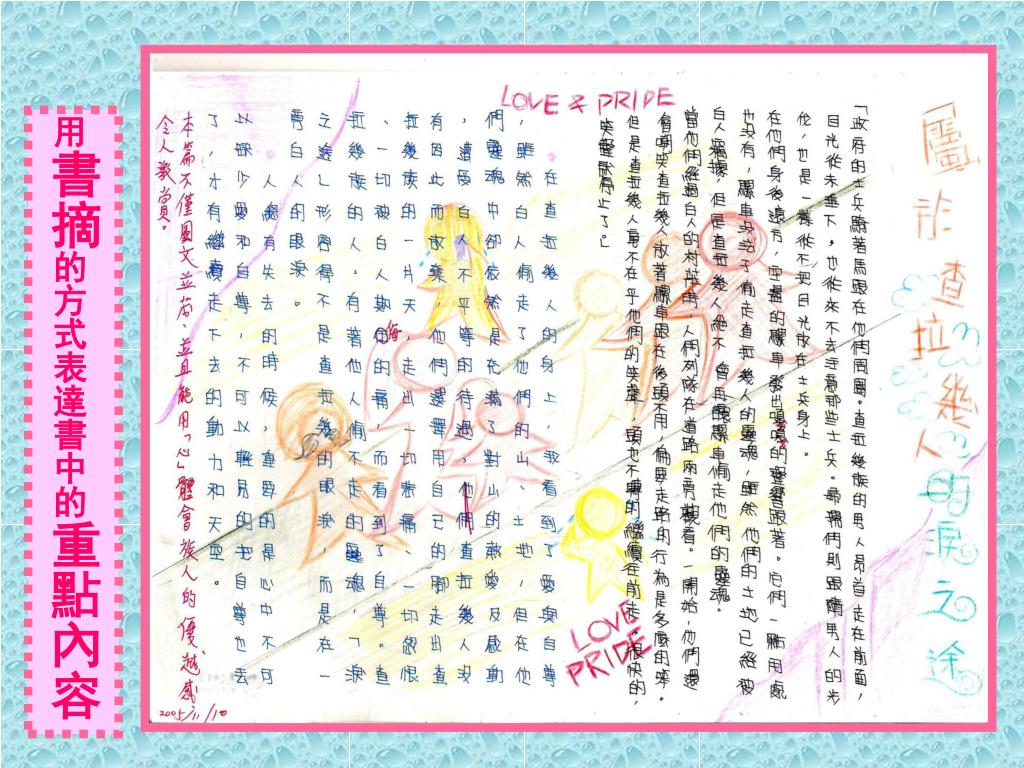 LOVE & PRIDE
屬於 查拉幾人的淚之途
「政府的士兵騎著馬跟在他們周圍。查拉幾族的男人昂首走在前面，
目光從未垂下，也從來不去注意那些士兵。婦孺們則跟隨男人的步
伐，也是一樣從不把目光放在士兵身上。
在他們身後遠方，空盪的騾車發出嘎嘎的聲響跟著。它們一點用處
也沒有，騾車沒法子偷走查拉幾人的靈魂，雖然他們的土地已經被
白人竊據，但是查拉幾人絕不會再讓騾車偷走他們的靈魂。
當他們經過白人的村莊時，人們列隊在道路兩旁觀看。一開始，他們還
會嘲笑查拉幾人放著騾車跟在後頭不用，偏要走路的行為是多麼的笨。
但是查拉幾人毫不在乎他們的笑虐，頭也不轉的繼續往前走。很快的，
笑聲就停止了。」
LOVE
PRIDE
。在查拉幾人的身上，我看到了愛與自尊
，雖然白人偷走了他們的山、土地，但在他
們靈魂中卻依然是充滿了對山的敬愛及感動
，遭受白人不平等的待遇，他們查拉幾人沒
有因此而放棄，他們還是用自己的腳走出查
拉幾族的一片天，走出一切悲痛、一切怨恨
、一切被白人欺侮的痛，而看到了自尊。查
拉幾族的人，有著他人偷不走的靈魂，「淚
之途」形容得不是查拉幾的眼淚，而是在一
旁白人的眼淚。
人總有失去的時候，重要的是心中不可
以缺少愛和自尊，不可以輕易的把自尊也丟
了，才有繼續走下去的動力和天空。
本篇不僅圖文並茂、並且能用「心」體會族人的優越感
令人激賞。
2005/11/10
用書摘的方式表達書中的重點內容